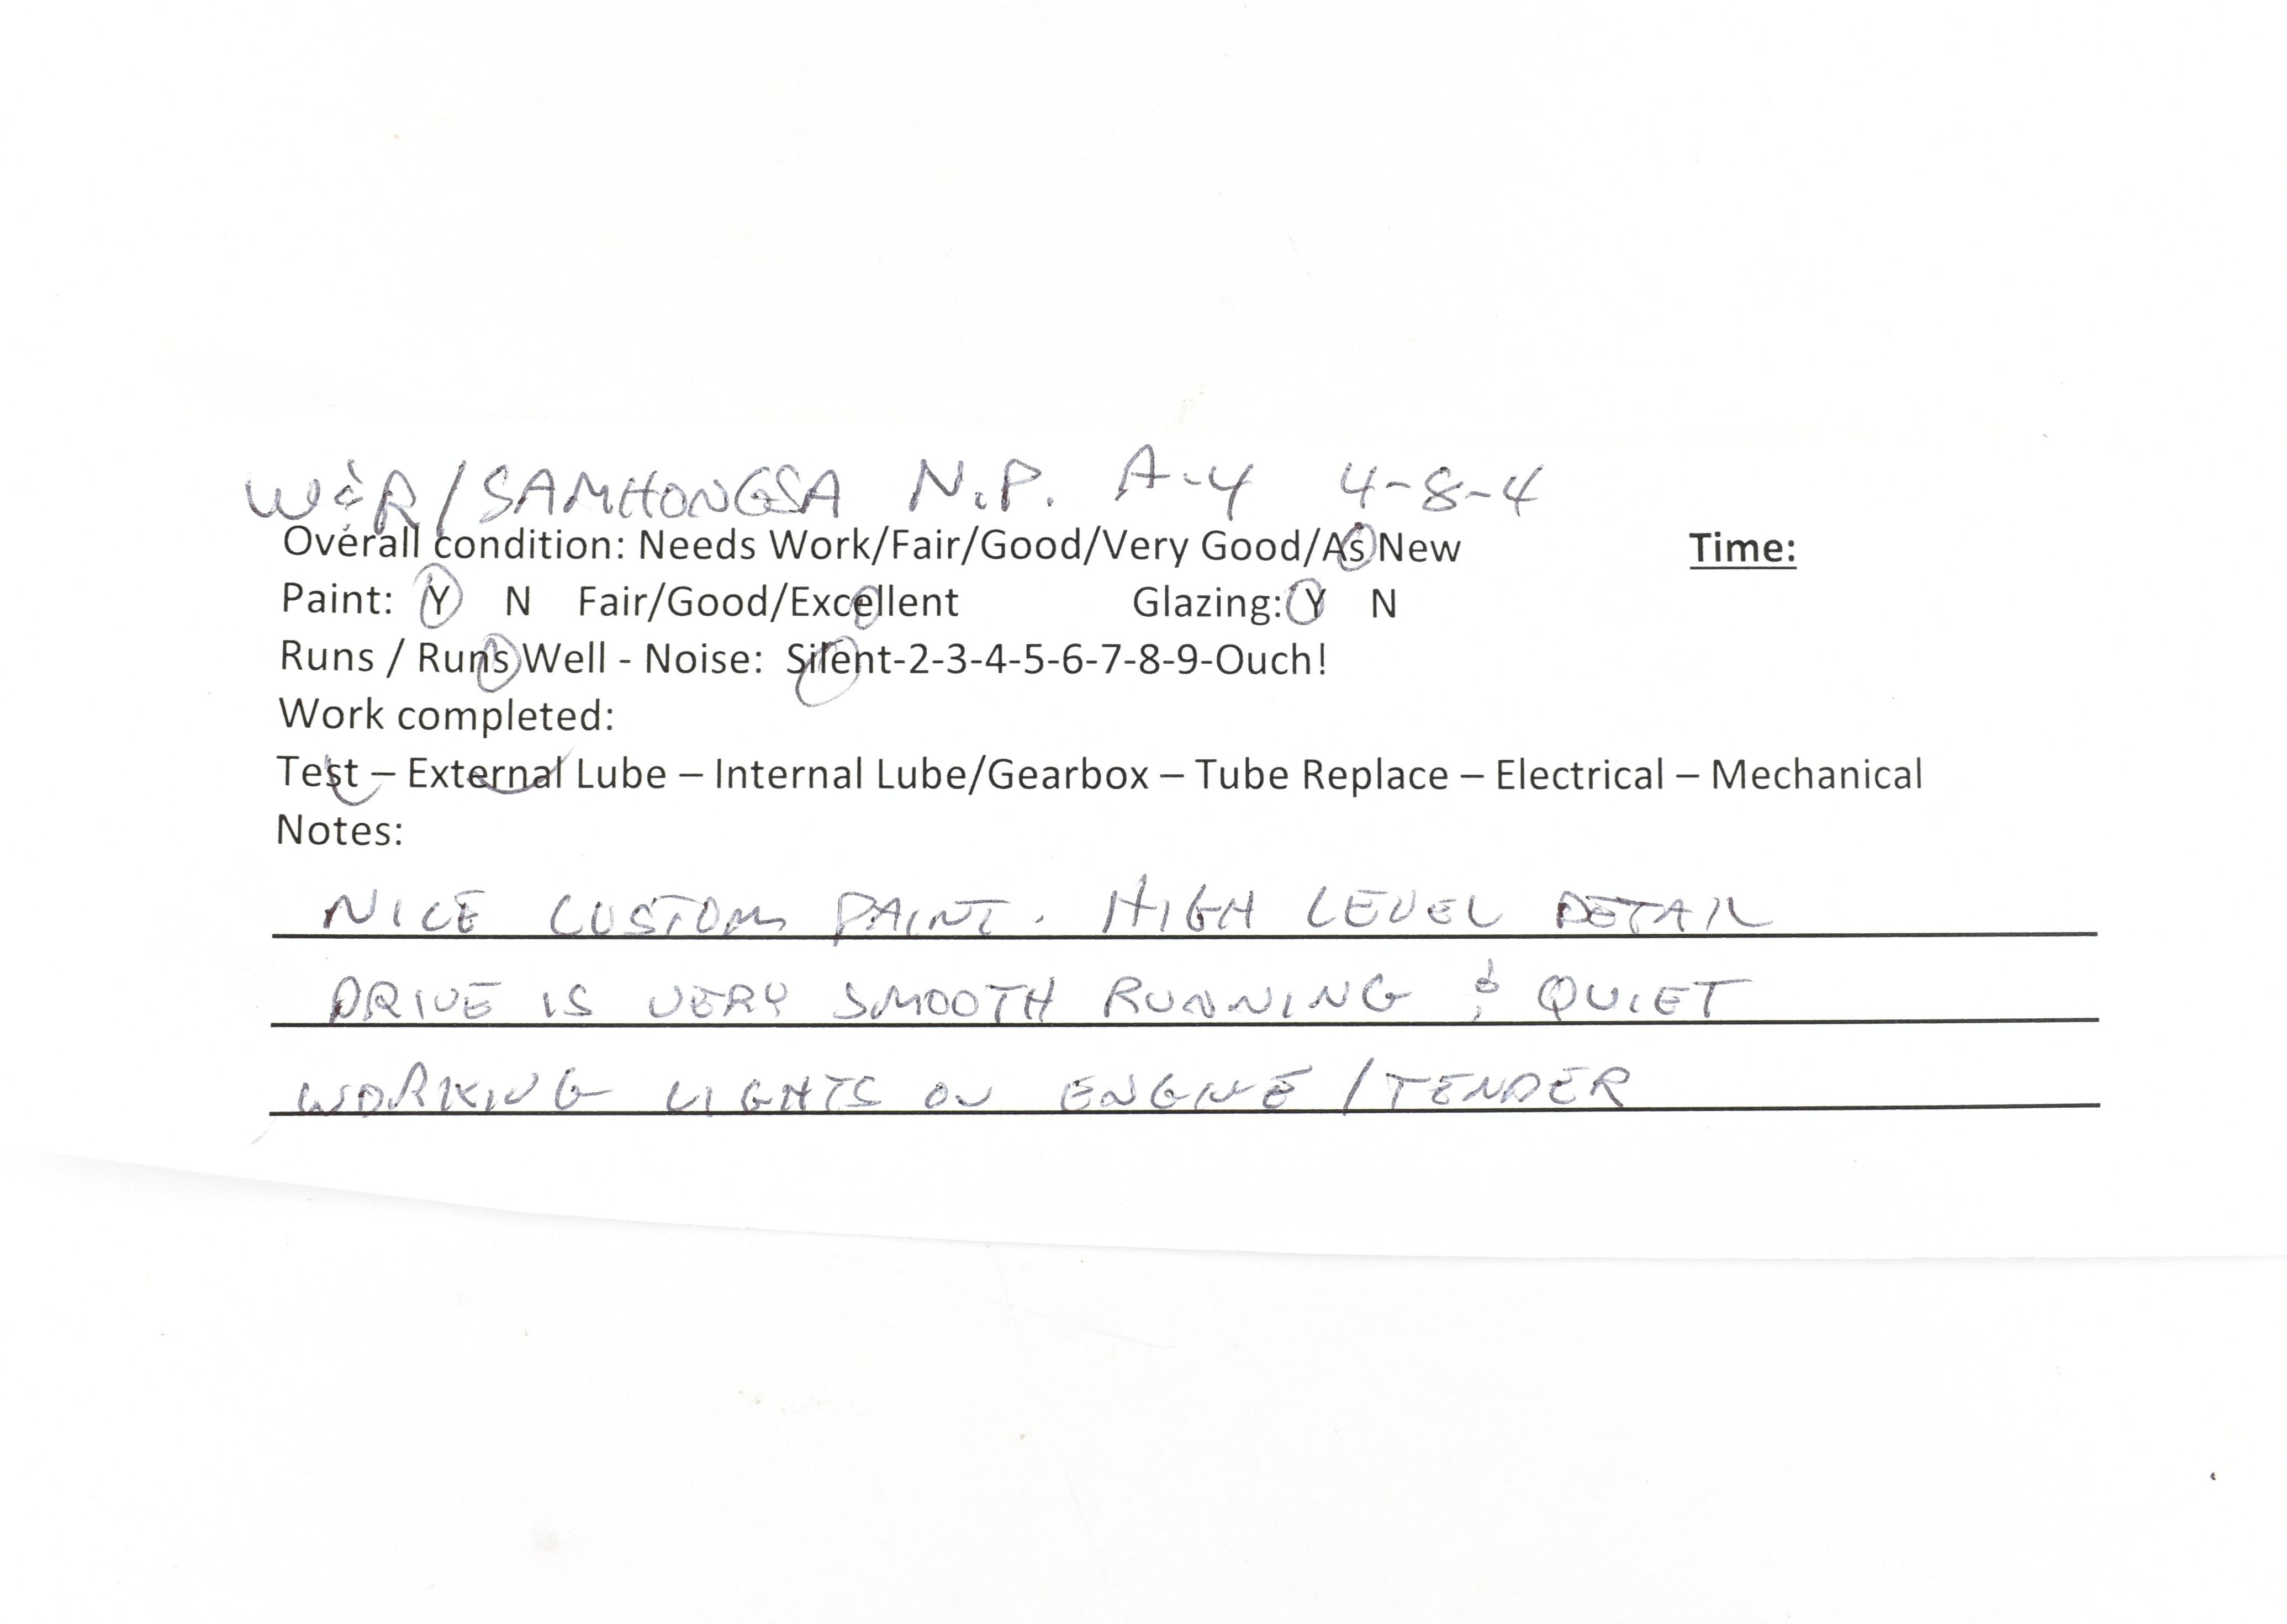 W&R/SAMHONGSA N.P. A-4 4-8-4
Overall condition: Needs Work/Fair/Good/Very Good/As New Time:
Paint: Y N Fair/Good/Excellent Glazing: Y N
Runs / Runs Well - Noise: Silent-2-3-4-5-6-7-8-9-Ouch!
Work completed:
Test – External Lube – Internal Lube/Gearbox – Tube Replace – Electrical – Mechanical
Notes:
NICE CUSTOM PAINT. HIGH LEVEL DETAIL
DRIVE IS VERY SMOOTH RUNNING & QUIET
WORKING LIGHTS ON ENGINE/TENDER